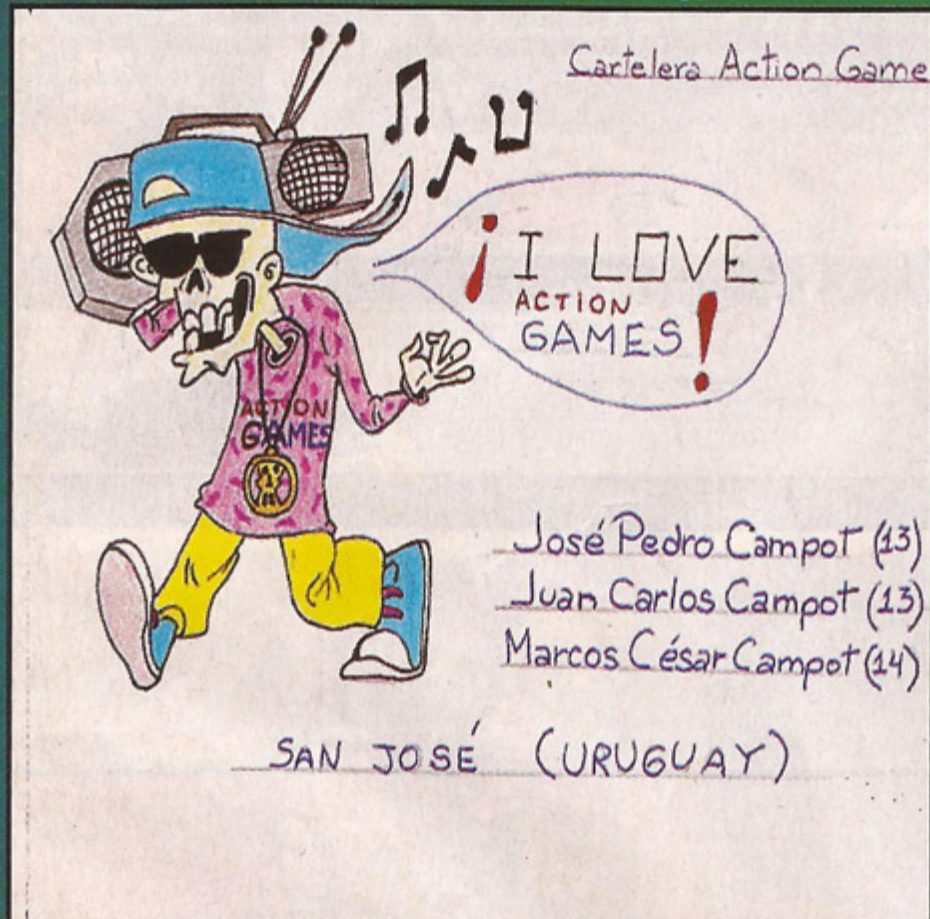 Cartelera Action Game
¡I LOVE
ACTION
GAMES!
ACTION
GAMES
José Pedro Campot (13)
Juan Carlos Campot (13)
Marcos César Campot (14)
SAN JOSÉ (URUGUAY)